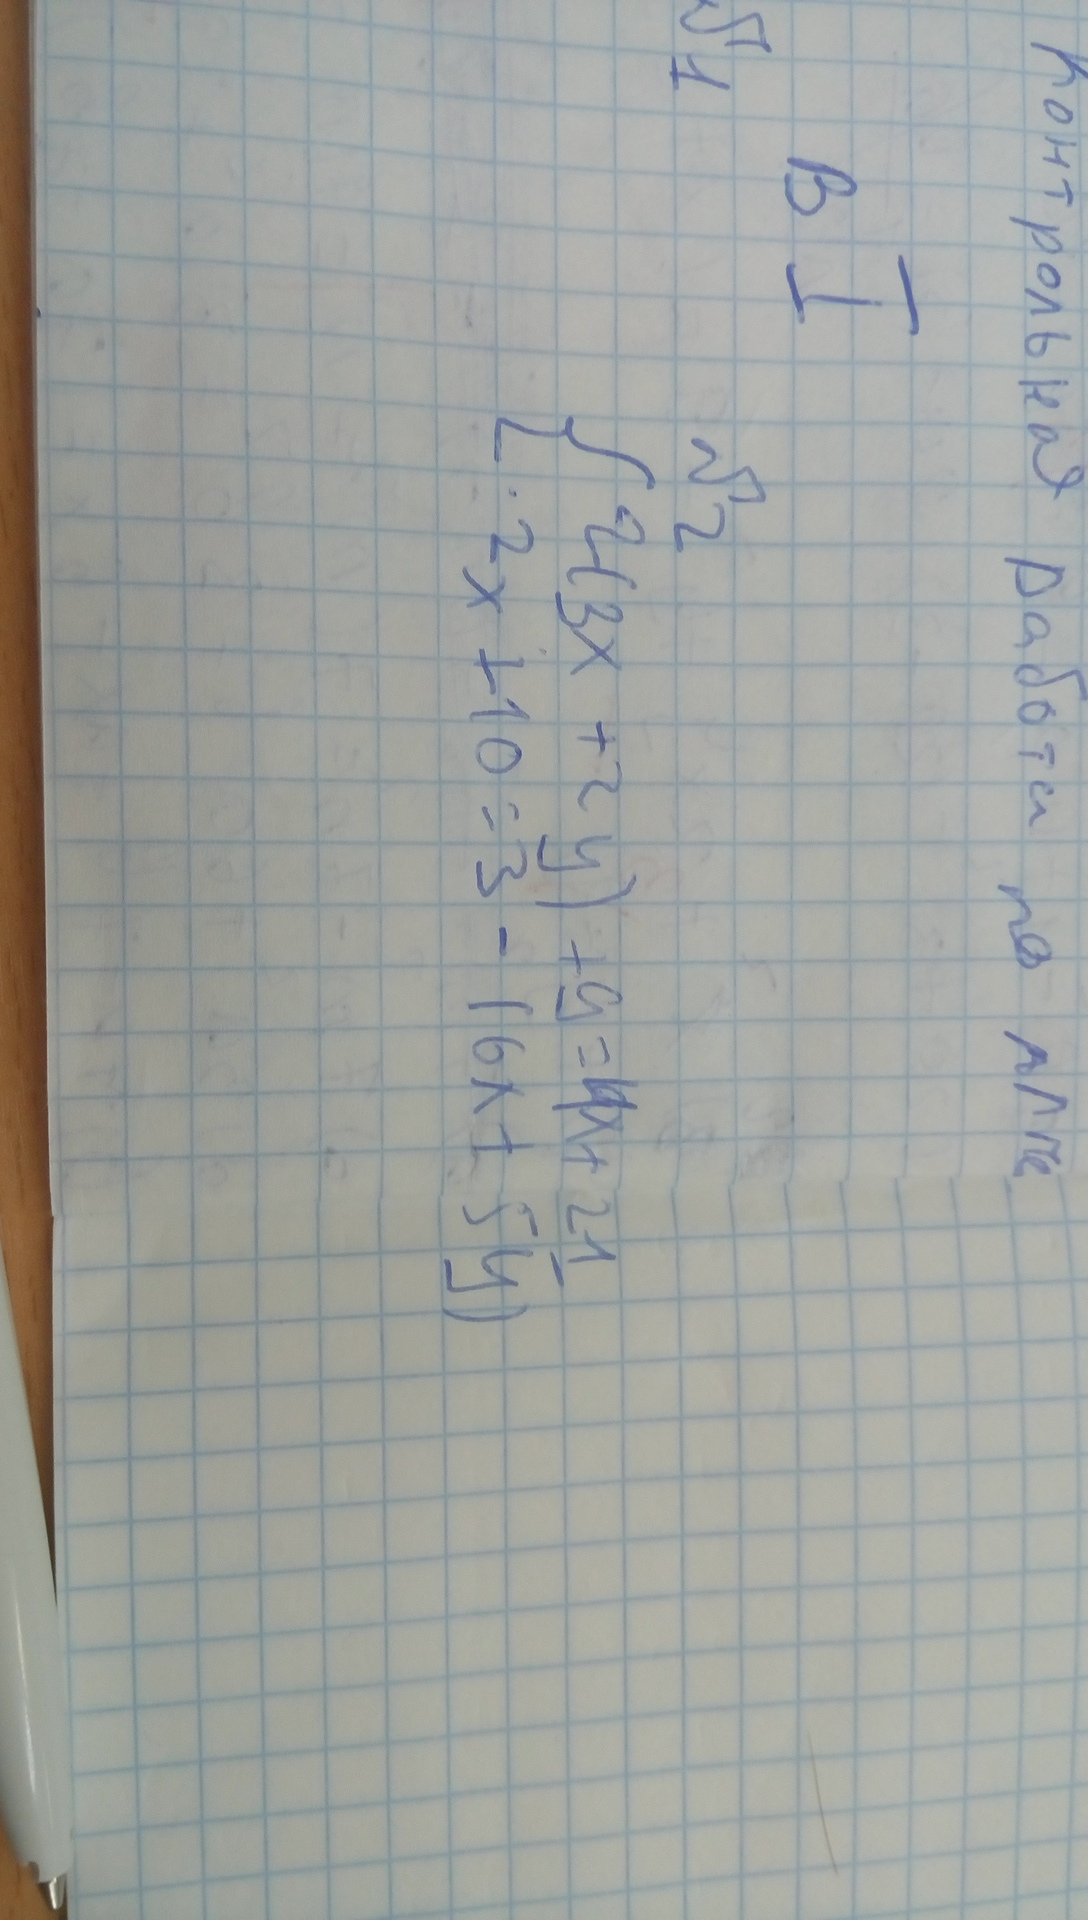 Контрольная работа по алге
В I
№1
№2
2(3x + 2y) + y = 4x + 21
2x + 10 = 3 - (6x + 5y)